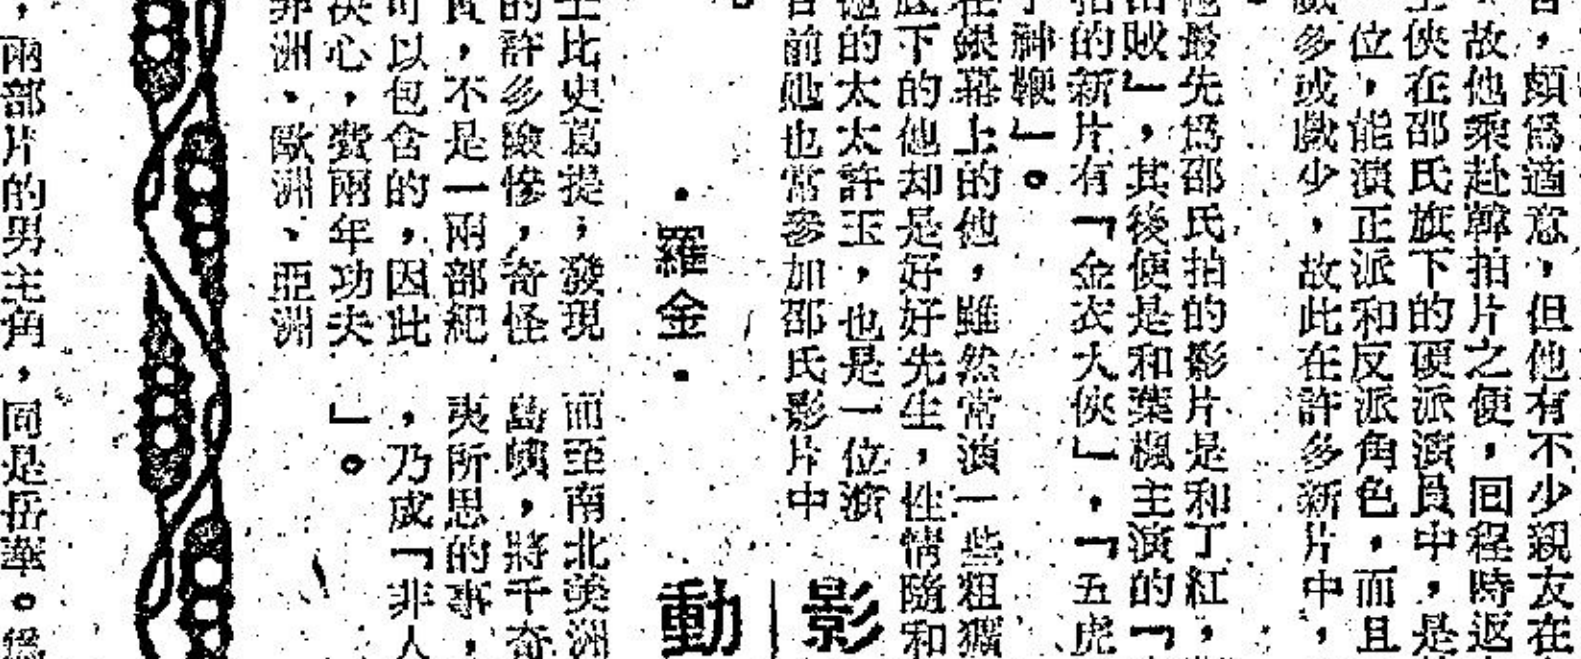 ,頗爲適意,但他有不少親友在
故他乘赴韓拍片之便,回程時返
俠在邵氏旗下的硬派演員中,是
位,能演正派和反派角色,而且
戲多或戲少,故此在許多新片中,
他最先爲邵氏拍的影片是和丁紅,
出賊」,其後便是和葉楓主演的「
拍的新片有「金衣大俠」,「五虎
神鞭」。
在銀幕上的他,雖然常演一些粗獷
底下的他却是好好先生,性情隨和
他的太太許玉,也是一位演
目前她也常參加邵氏影片中
影
動
·羅金·
士比史葛提,發現
的許多險慘,奇怪
實,不是一兩部紀
可以包含的,因此
決心,費兩年功夫
非洲、歐洲、亞洲
而至南北美洲
島嶼,將千奇
夷所思的事,
,乃成「非人
」。
,兩部片的男主角,同是岳華。